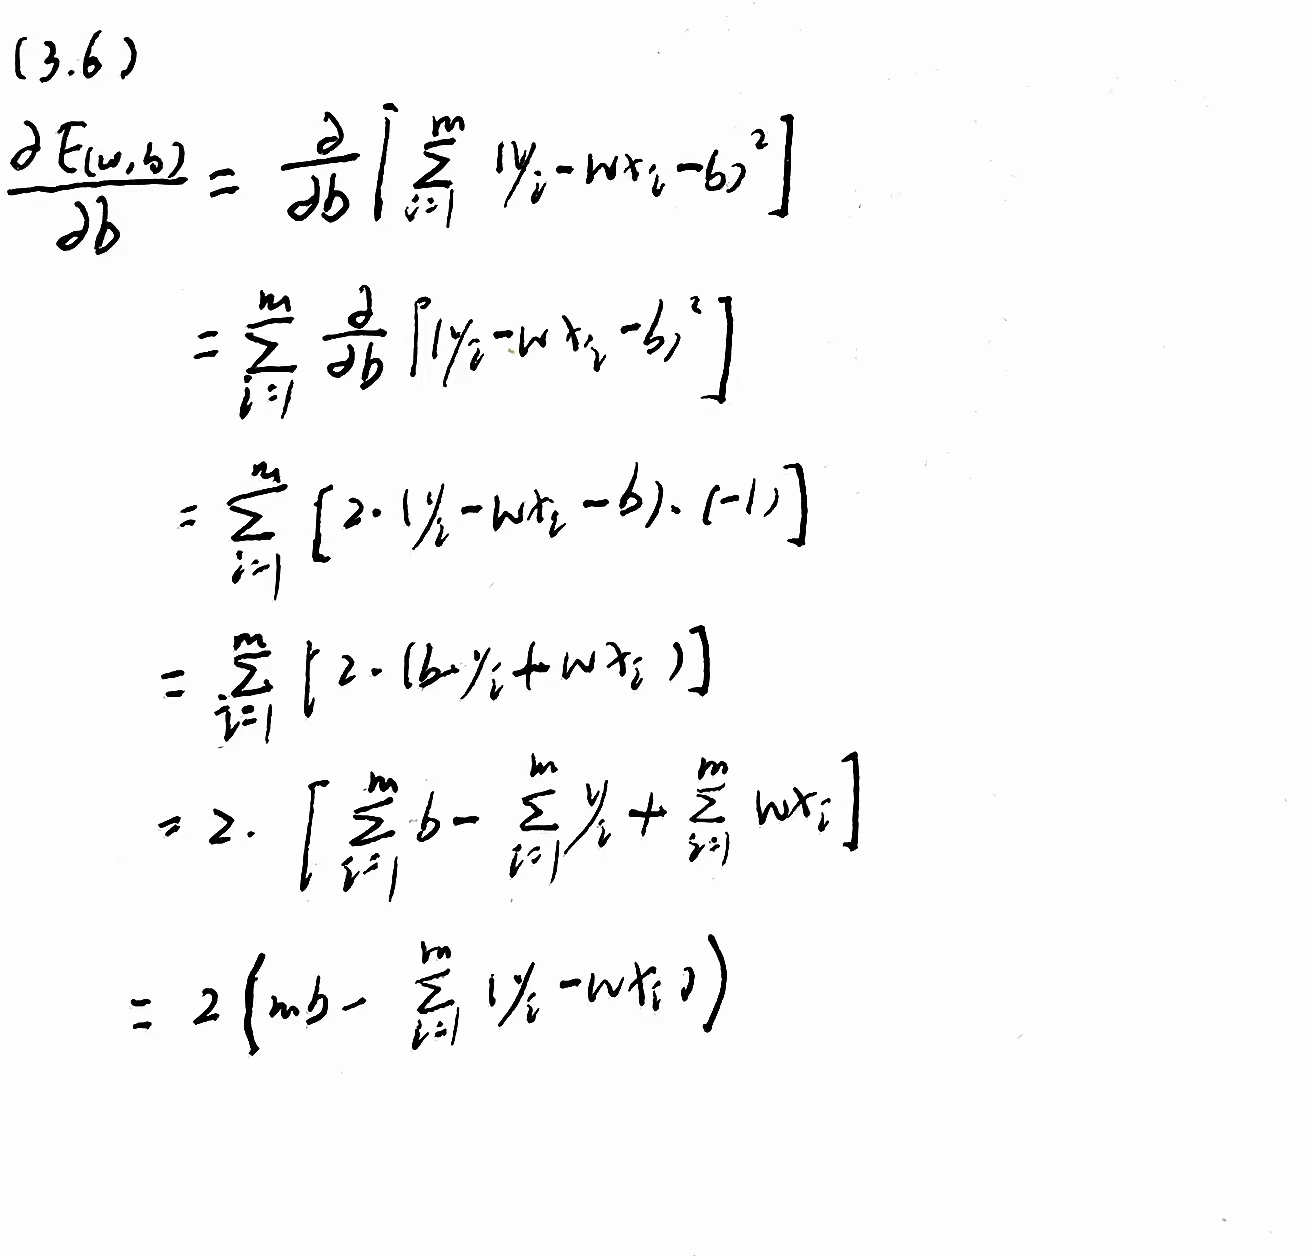 (3.6)
∂E(w,b)/∂b = ∂/∂b [∑_{i=1}^{m} (y_i - wx_i - b)²]
= ∑_{i=1}^{m} ∂/∂b [(y_i - wx_i - b)²]
= ∑_{i=1}^{m} [2·(y_i - wx_i - b)·(-1)]
= ∑_{i=1}^{m} [2·(b - y_i + wx_i)]
= 2·[∑_{i=1}^{m} b - ∑_{i=1}^{m} y_i + ∑_{i=1}^{m} wx_i]
= 2(mb - ∑_{i=1}^{m} (y_i - wx_i))